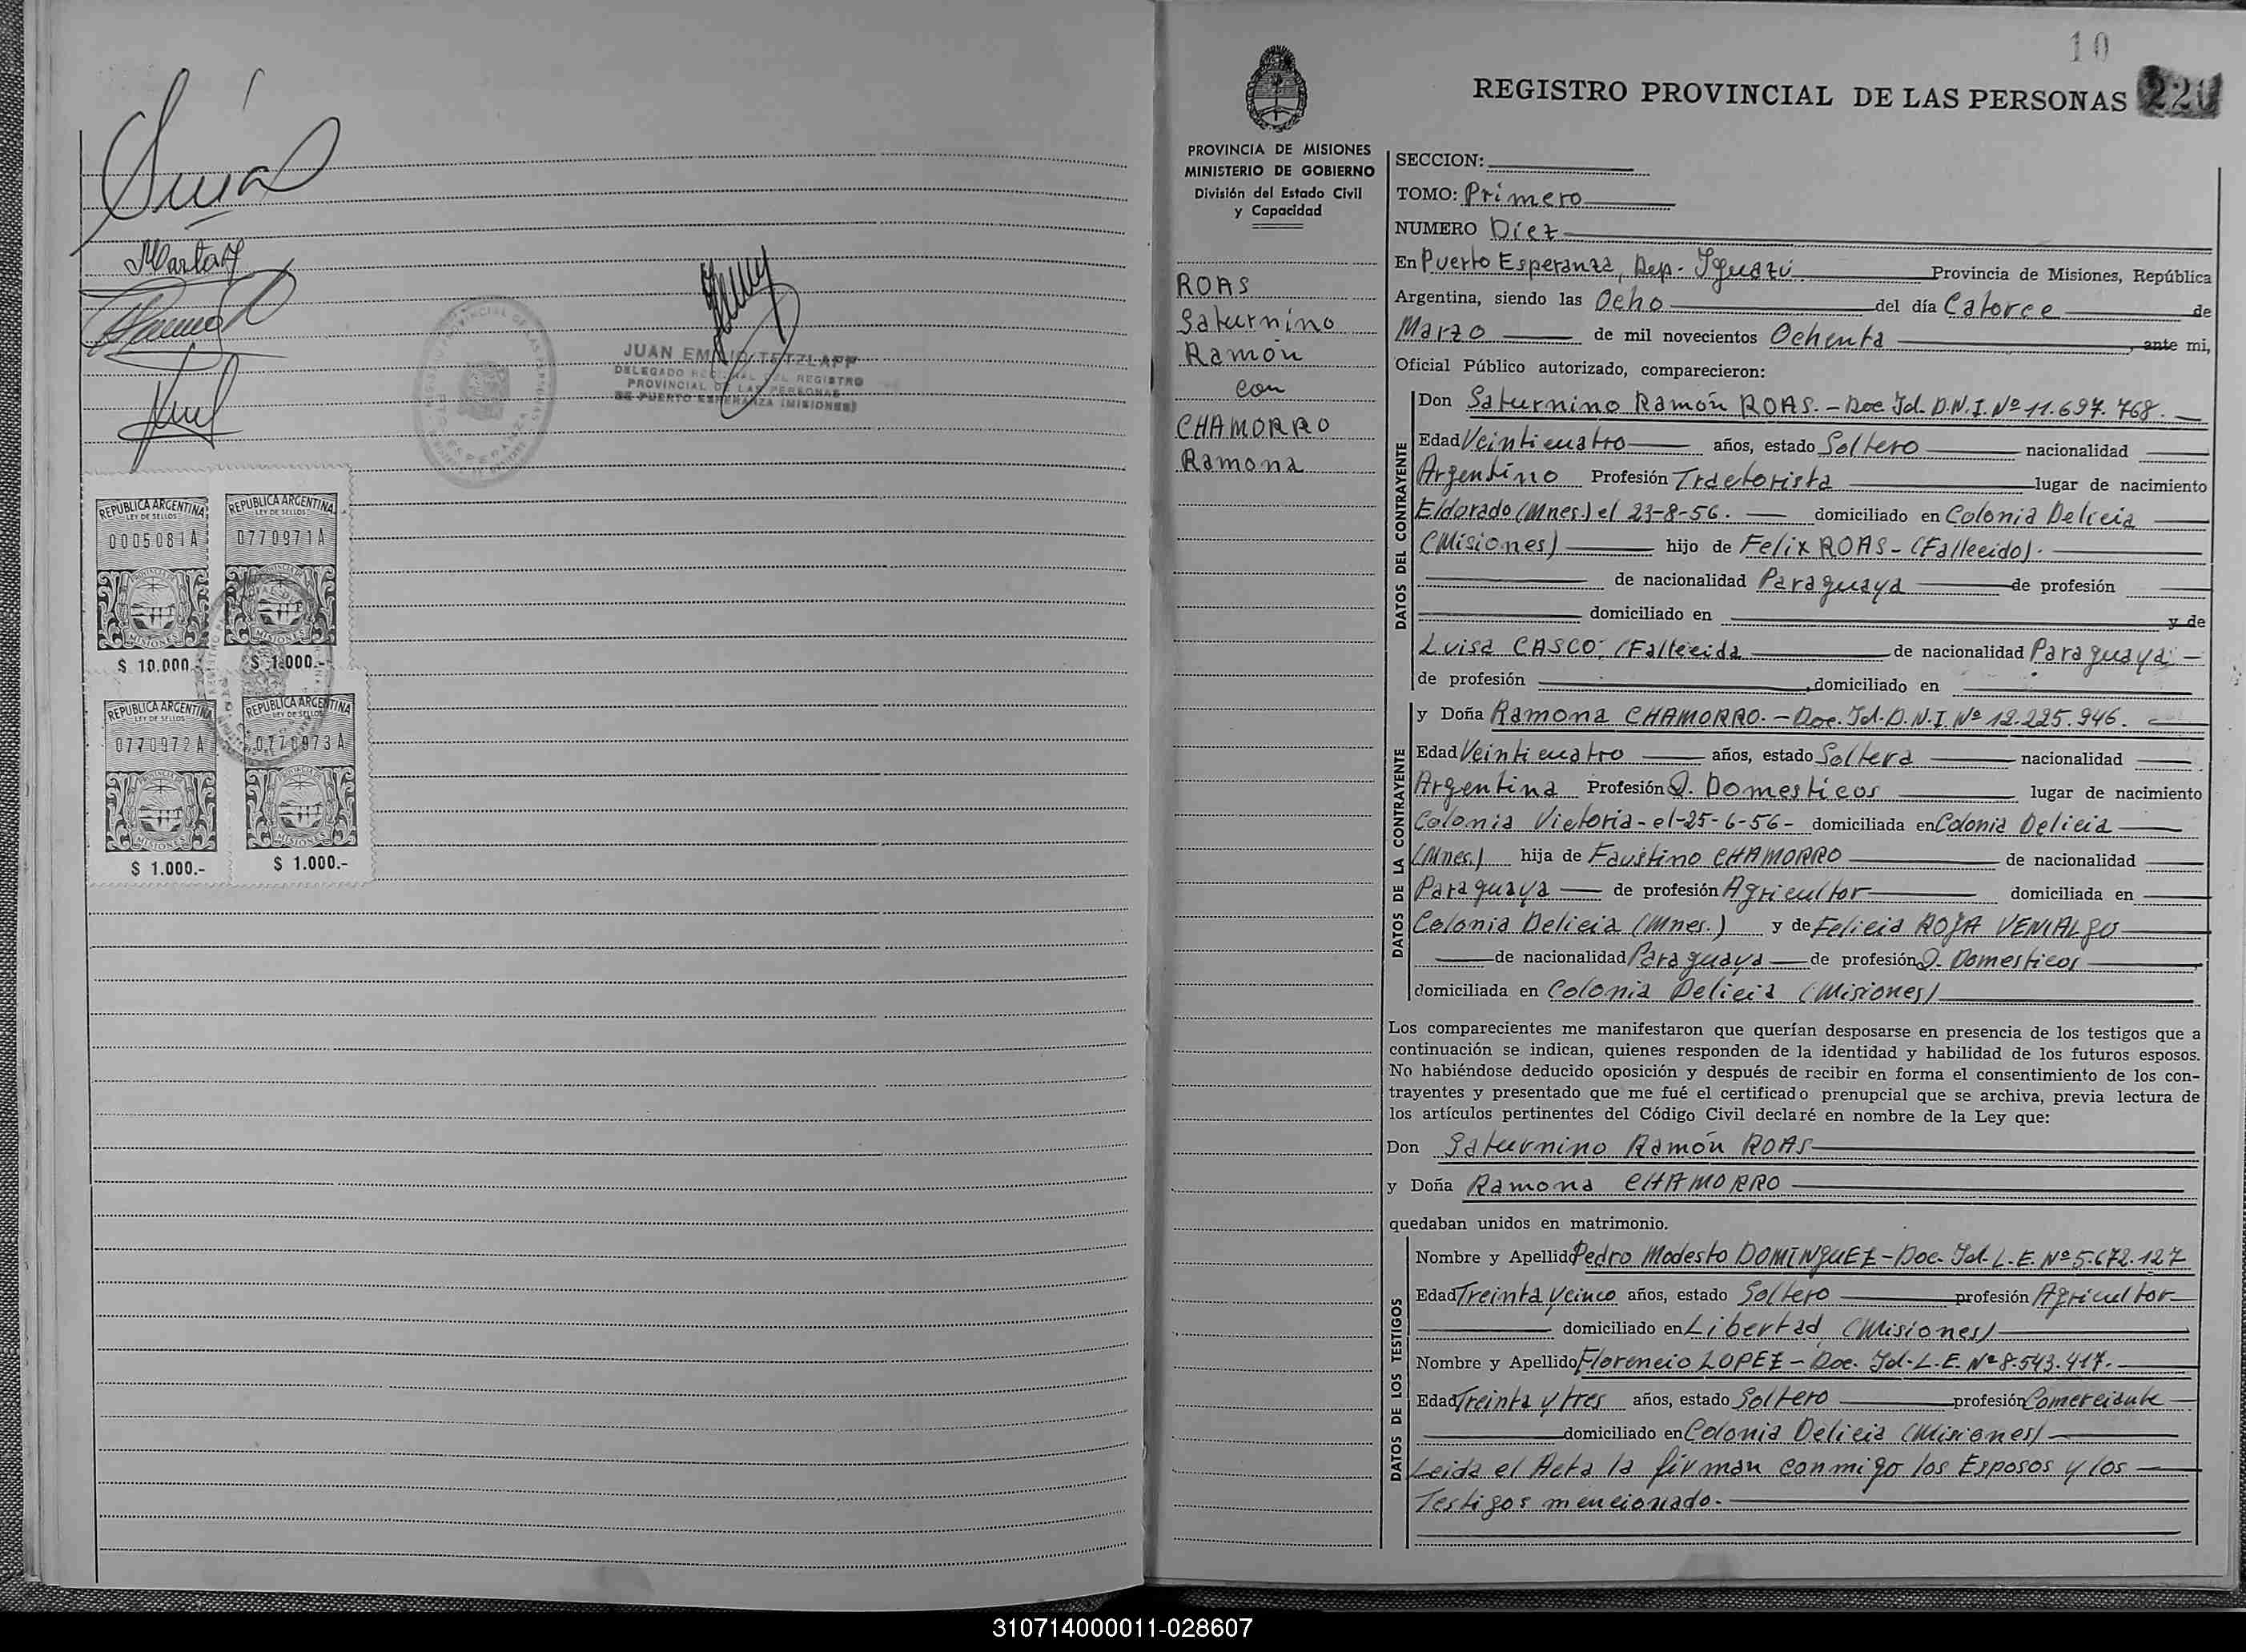 Marta
JUAN EMILIO TETZLAFF
DELEGADO REGIONAL DEL REGISTRO
PROVINCIAL DE LAS PERSONAS
DE PUERTO ESPERANZA (MISIONES)
REPUBLICA ARGENTINA
LEY DE SELLOS
0005081A
PROVINCIA DE
MISIONES
$ 10.000.-
REPUBLICA ARGENTINA
LEY DE SELLOS
0770971A
MISIONES
$ 1.000.-
REPUBLICA ARGENTINA
LEY DE SELLOS
0770972A
PROVINCIA DE
MISIONES
$ 1.000.-
REPUBLICA ARGENTINA
LEY DE SELLOS
0770973A
PROVINCIA DE
MISIONES
$ 1.000.-
10
REGISTRO PROVINCIAL DE LAS PERSONAS 220
PROVINCIA DE MISIONES
MINISTERIO DE GOBIERNO
División del Estado Civil
y Capacidad
ROAS
Saturnino
Ramón
con
CHAMORRO
Ramona
SECCION:
TOMO: Primero
NUMERO Diez
En Puerto Esperanza, Dep. Iguazú Provincia de Misiones, República
Argentina, siendo las Ocho del día Catorce de
Marzo de mil novecientos Ochenta, ante mi,
Oficial Público autorizado, comparecieron:
DATOS DEL CONTRAYENTE
Don Saturnino Ramón ROAS.- Doc. Id. D.N.I. Nº 11.697.768.
Edad Veinticuatro años, estado Soltero nacionalidad
Argentino Profesión Tractorista lugar de nacimiento
Eldorado (Mnes.) el 23-8-56. domiciliado en Colonia Delicia
(Misiones) hijo de Felix ROAS - (Fallecido).
de nacionalidad Paraguaya de profesión
domiciliado en y de
Luisa CASCO; (Fallecida de nacionalidad Paraguaya
de profesión , domiciliado en
DATOS DE LA CONTRAYENTE
y Doña Ramona CHAMORRO.- Doc. Id. D.N.I. Nº 12.225.946.
Edad Veinticuatro años, estado Soltera nacionalidad
Argentina Profesión Q. Domesticos lugar de nacimiento
Colonia Victoria - el-25-6-56- domiciliada en Colonia Delicia
(Mnes.) hija de Faustino CHAMORRO de nacionalidad
Paraguaya de profesión Agricultor domiciliada en
Colonia Delicia (Mnes.) y de Felicia ROJA VENIALgo
de nacionalidad Paraguaya de profesión Q. Domesticos
domiciliada en Colonia Delicia (Misiones)
Los comparecientes me manifestaron que querían desposarse en presencia de los testigos que a
continuación se indican, quienes responden de la identidad y habilidad de los futuros esposos.
No habiéndose deducido oposición y después de recibir en forma el consentimiento de los con-
trayentes y presentado que me fué el certificado prenupcial que se archiva, previa lectura de
los artículos pertinentes del Código Civil declaré en nombre de la Ley que:
Don Saturnino Ramón ROAS
y Doña Ramona CHAMORRO
quedaban unidos en matrimonio.
DATOS DE LOS TESTIGOS
Nombre y Apellido Pedro Modesto DOMINgUEZ - Doc. Id. L.E. Nº 5.672.127
Edad Treinta y cinco años, estado Soltero profesión Agricultor
domiciliado en Libertad (Misiones)
Nombre y Apellido Florencio LOPEZ - Doc. Id. L.E. Nº 8.543.417.
Edad Treinta y tres años, estado Soltero profesión Comerciante
domiciliado en Colonia Delicia (Misiones)
Leida el Acta la firman conmigo los Esposos y los
Testigos mencionado.
310714000011-028607